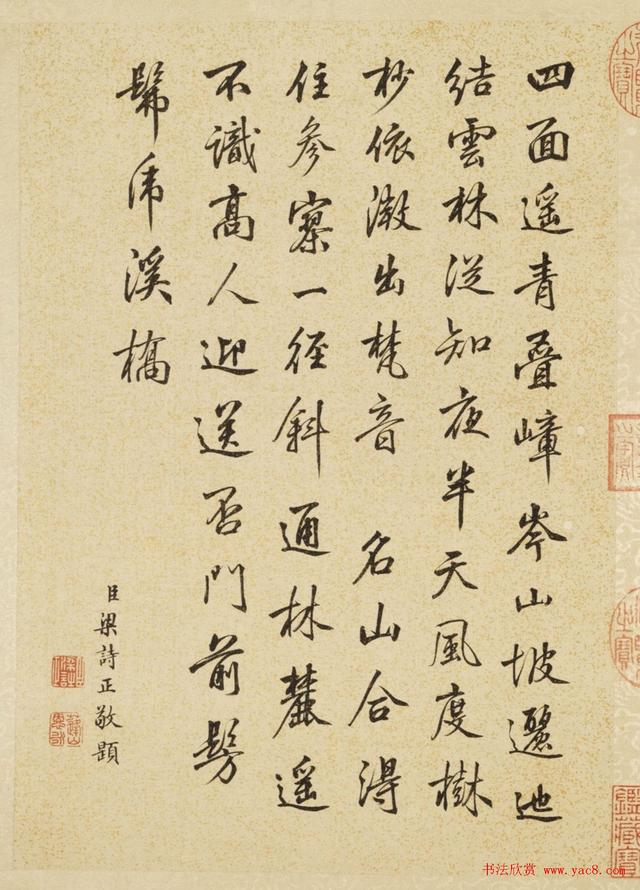 四面遥青疊嶂岑山坡邐迆
結雲林從知夜半天風度樹
杪依微出梵音 名山合得
住參寥一徑斜通林麓遥
不識高人迎送否門前髣
髴虎溪橋
臣梁詩正敬題
书法欣赏 www.yac8.com